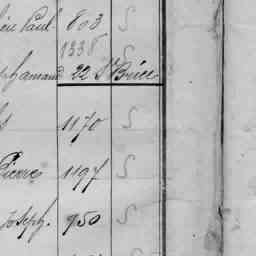 Paul 803 S
1338 S
22 St Brice
1170 S
Pierre 1197 S
Joseph. 950 S